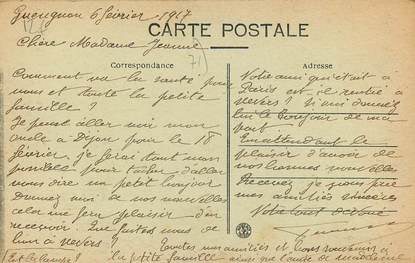 Gueugnon 6 février 1917
CARTE POSTALE
Chère Madame Jeanne
Correspondance
Comment va la santé pour
vous et toute la petite
famille ?
Je pense aller voir mon
oncle a Dijon pour le 18
février, je ferai tout mon
possible pour d'aller
vous dire un petit bonjour
Donnez moi de vos nouvelles
cela me fera plaisir d'en
recevoir. Que faites vous de
bon à nevers ?
Adresse
Votre ami qui était à
Paris est il rentré a
nevers ? Si oui donnez
lui le bonjour de ma
part.
En attendant le
plaisir d'avoir de
vos bonnes nouvelles
Recevez je vous prie
mes amitiés sincères
Votre tout dévoué
Toutes mes amitiés et bons souvenirs à
la petite famille ainsi que de madame